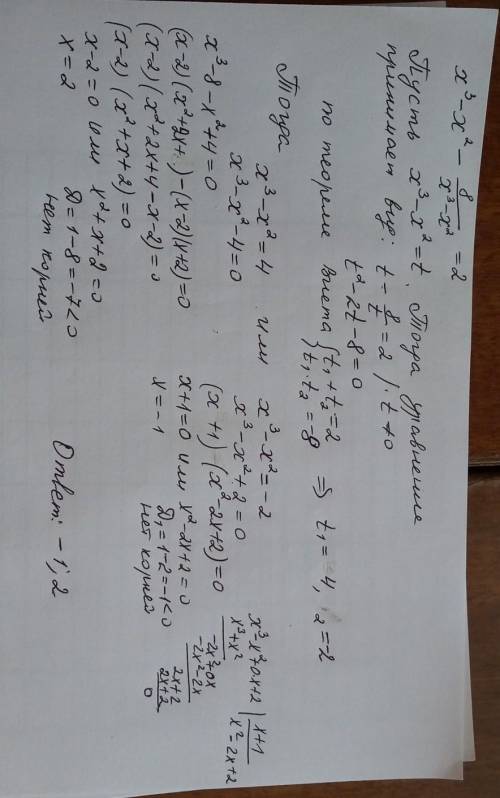 x³-x² - 8/(x³-x²) = 2
Пусть x³-x²=t. Тогда уравнение
принимает вид: t - 8/t = 2 /· t≠0
t²-2t-8=0
по теореме Виета { t₁+t₂=2 t₁·t₂=-8 ⇒ t₁= 4, ₂=-2
Тогда x³-x²=4 или x³-x²=-2
x³-x²-4=0
x³-8-x²+4=0
(x-2)(x²+2x+ )-(x-2)(x+2)=0
(x-2)(x²+2x+4-x-2)=0
(x-2)(x²+x+2)=0
x-2=0 или x²+x+2=0
x=2 D=1-8=-7<0
нет корней
x³-x²+2=0
(x+1)(x²-2x+2)=0
x+1=0 или x²-2x+2=0
x=-1 D₁=1-2=-1<0
нет корней
x³-x²+0x+2 | x+1
x³+x² x²-2x+2
-2x²+0x
-2x²-2x
2x+2
2x+2
0
Ответ: -1; 2